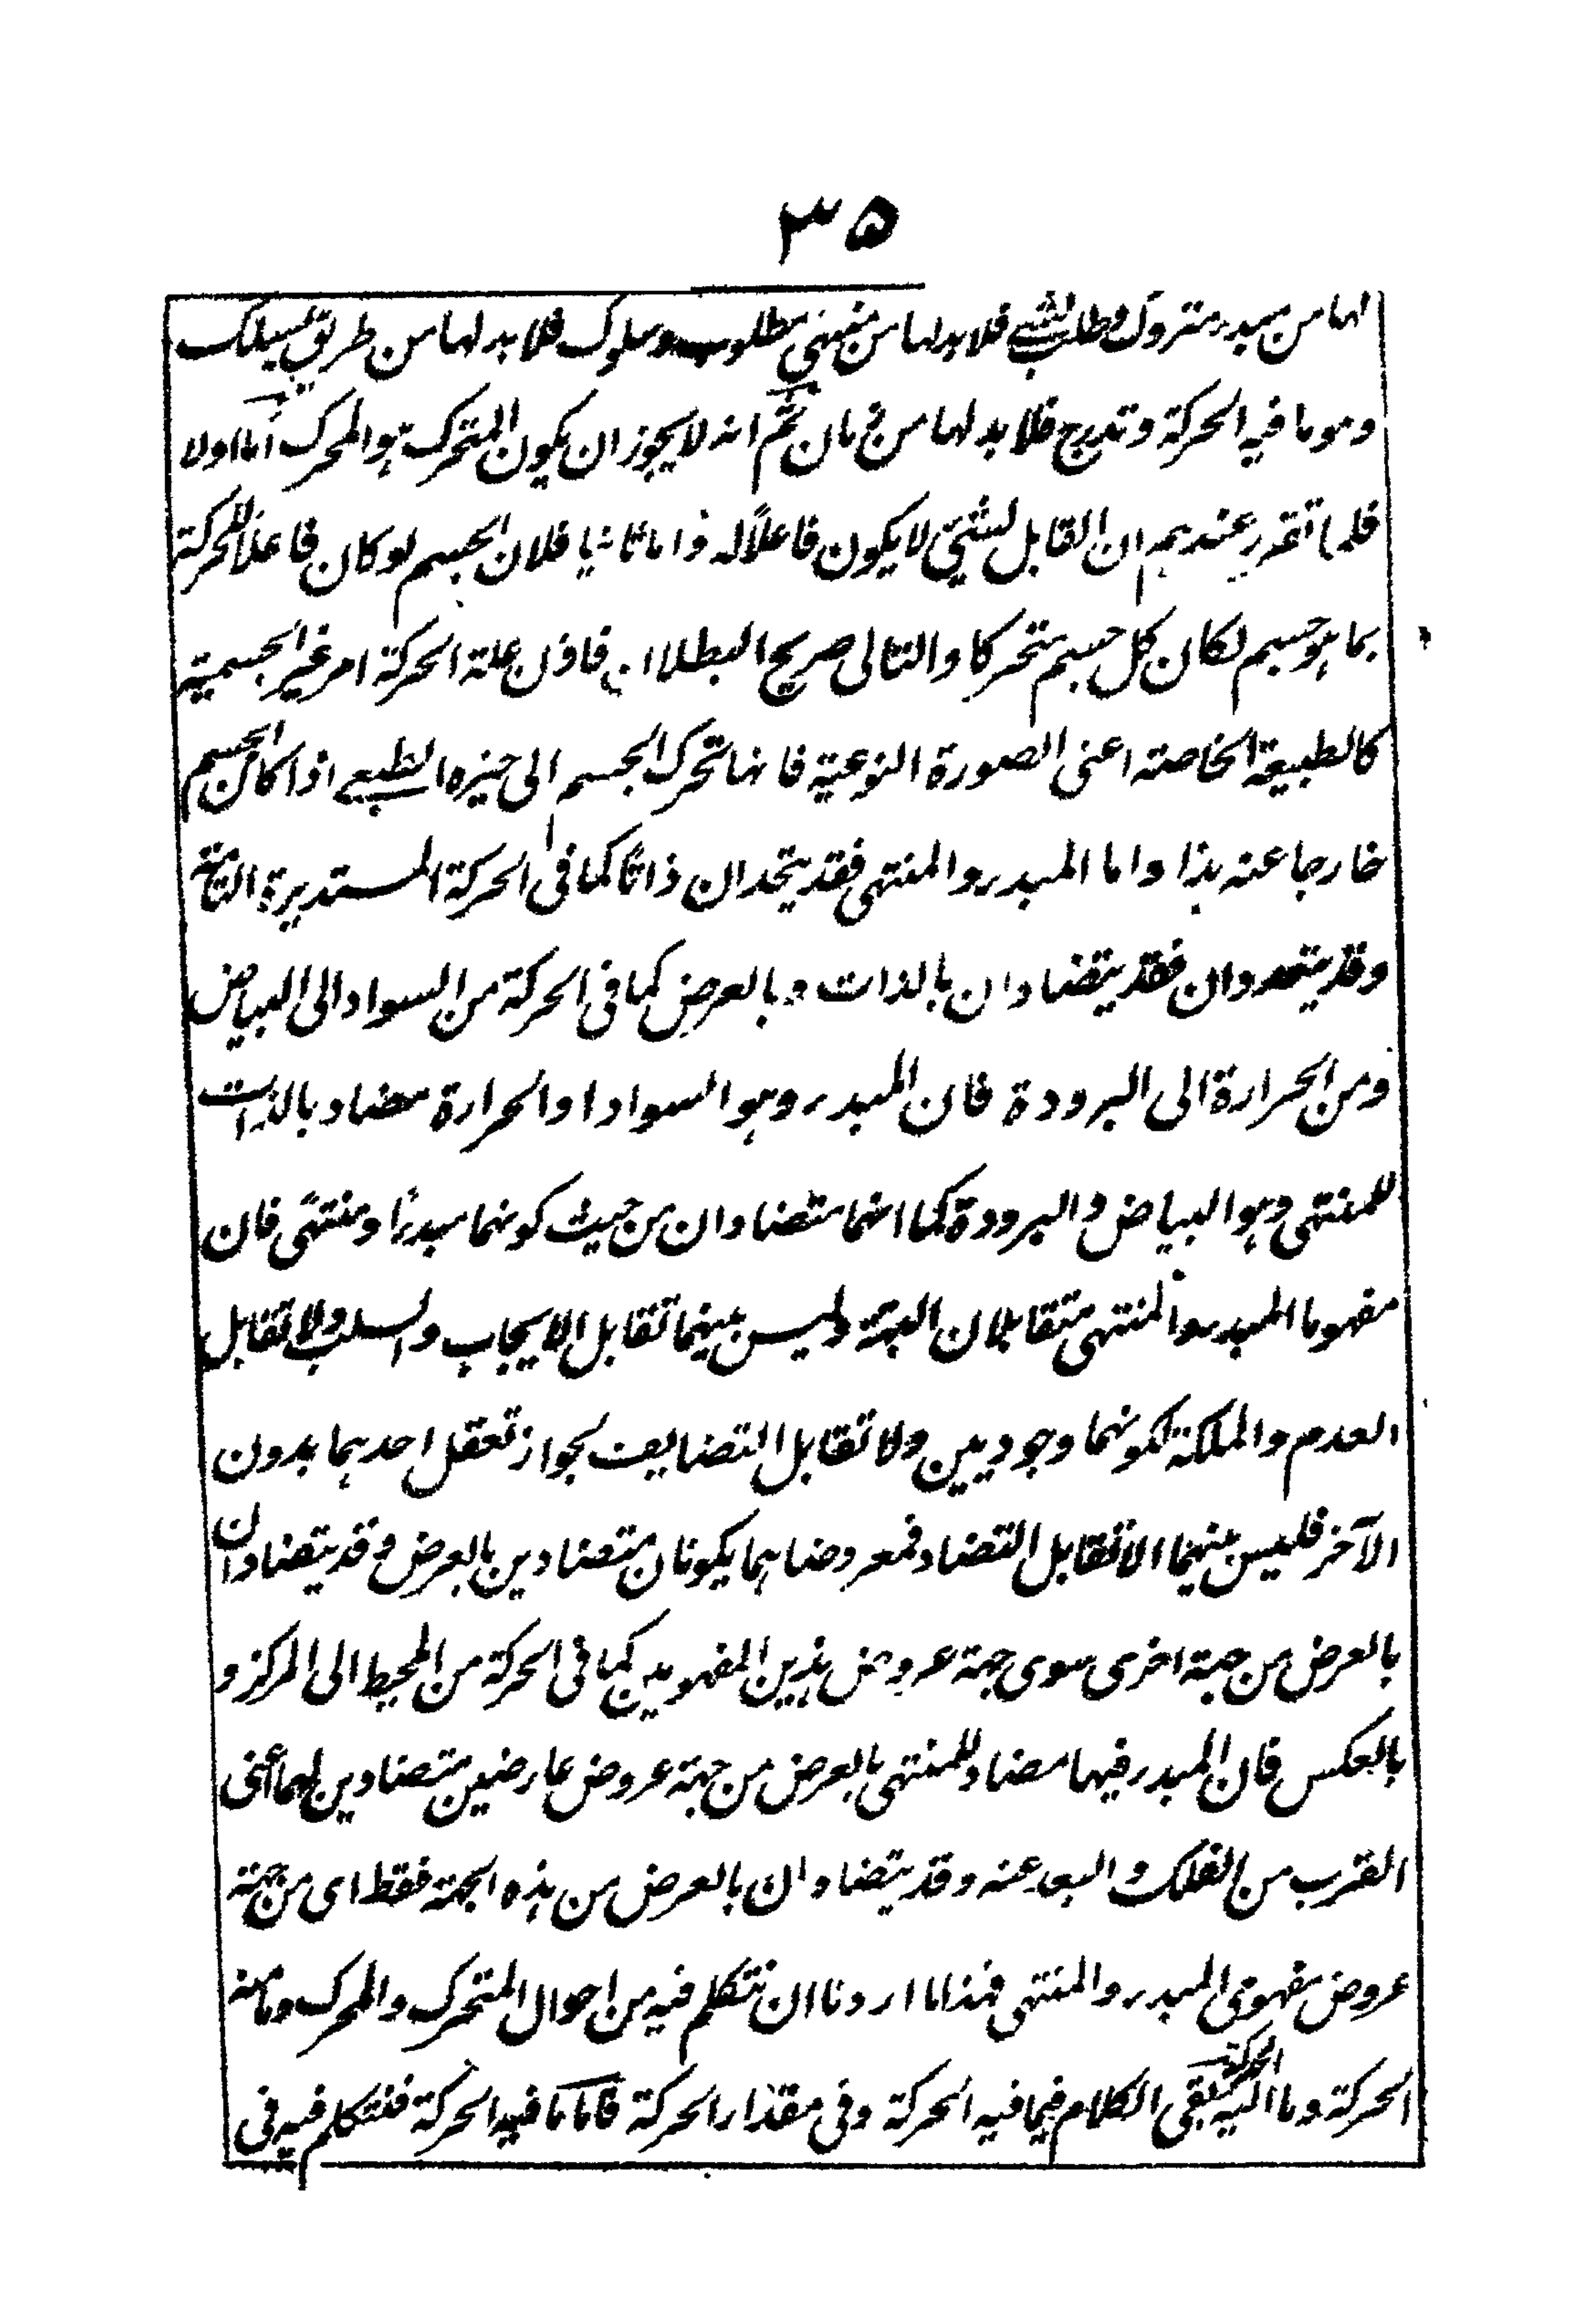 ٣٥
لها من مبدء متروك وطلب لشئ فلا بد لها من منتهى مطلوب وسلوك فلا بد لها من طريق يسلك
وهو ما فيه الحركة وتدرج فلا بد لها من زمان ثم انه لا يجوز ان يكون المتحرك هو المحرك اما اولا
فلما تقرر عندهم ان القابل لشئ لا يكون فاعلاً له واما ثانيا فلان الجسم لو كان فاعلاً للحركة
بما هو جسم لكان كل جسم متحركا والتالى صريح البطلان فاذن علة الحركة امر غير الجسمية
كالطبيعة الخاصة اعنى الصورة النوعية فانها تحرك الجسم الى حيزه الطبعى اذا كان الجسم
خارجا عنه هذا واما المبدء والمنتهى فقد يتحدان ذاتاً كما فى الحركة المستديرة التامة
وقد يتعددان فقد يتضادان بالذات وبالعرض كما فى الحركة من السواد الى البياض
ومن الحرارة الى البرودة فان المبدء وهو السواد او الحرارة مضاد بالذات
للمنتهى وهو البياض والبرودة كما انهما متضادان من حيث كونهما مبدءًا ومنتهًى فان
مفهوما المبدء والمنتهى متقابلان البتة وليس بينهما تقابل الايجاب والسلب ولا تقابل
العدم والملكة لكونهما وجوديين ولا تقابل التضايف لجواز تعقل احدهما بدون
الآخر فليس بينهما الا تقابل التضاد فمعروضاهما يكونان متضادين بالعرض وقد يتضادان
بالعرض من جهة اخرى سوى جهة عروض هذين المفهومين كما فى الحركة من المحيط الى المركز و
بالعكس فان المبدء فيها مضاد للمنتهى بالعرض من جهة عروض عارضين متضادين لهما أعنى
القرب من الفلك والبعد عنه وقد يتضادان بالعرض من هذه الجهة فقط اى من جهة
عروض مفهومى المبدء والمنتهى فهذا ما اردنا ان نتكلم فيه من احوال المتحرك والمحرك وما منه
الحركة وما اليه الحركة بقى الكلام فيما فيه الحركة وفى مقدار الحركة فاما ما فيه الحركة فنتكلم فيه فى